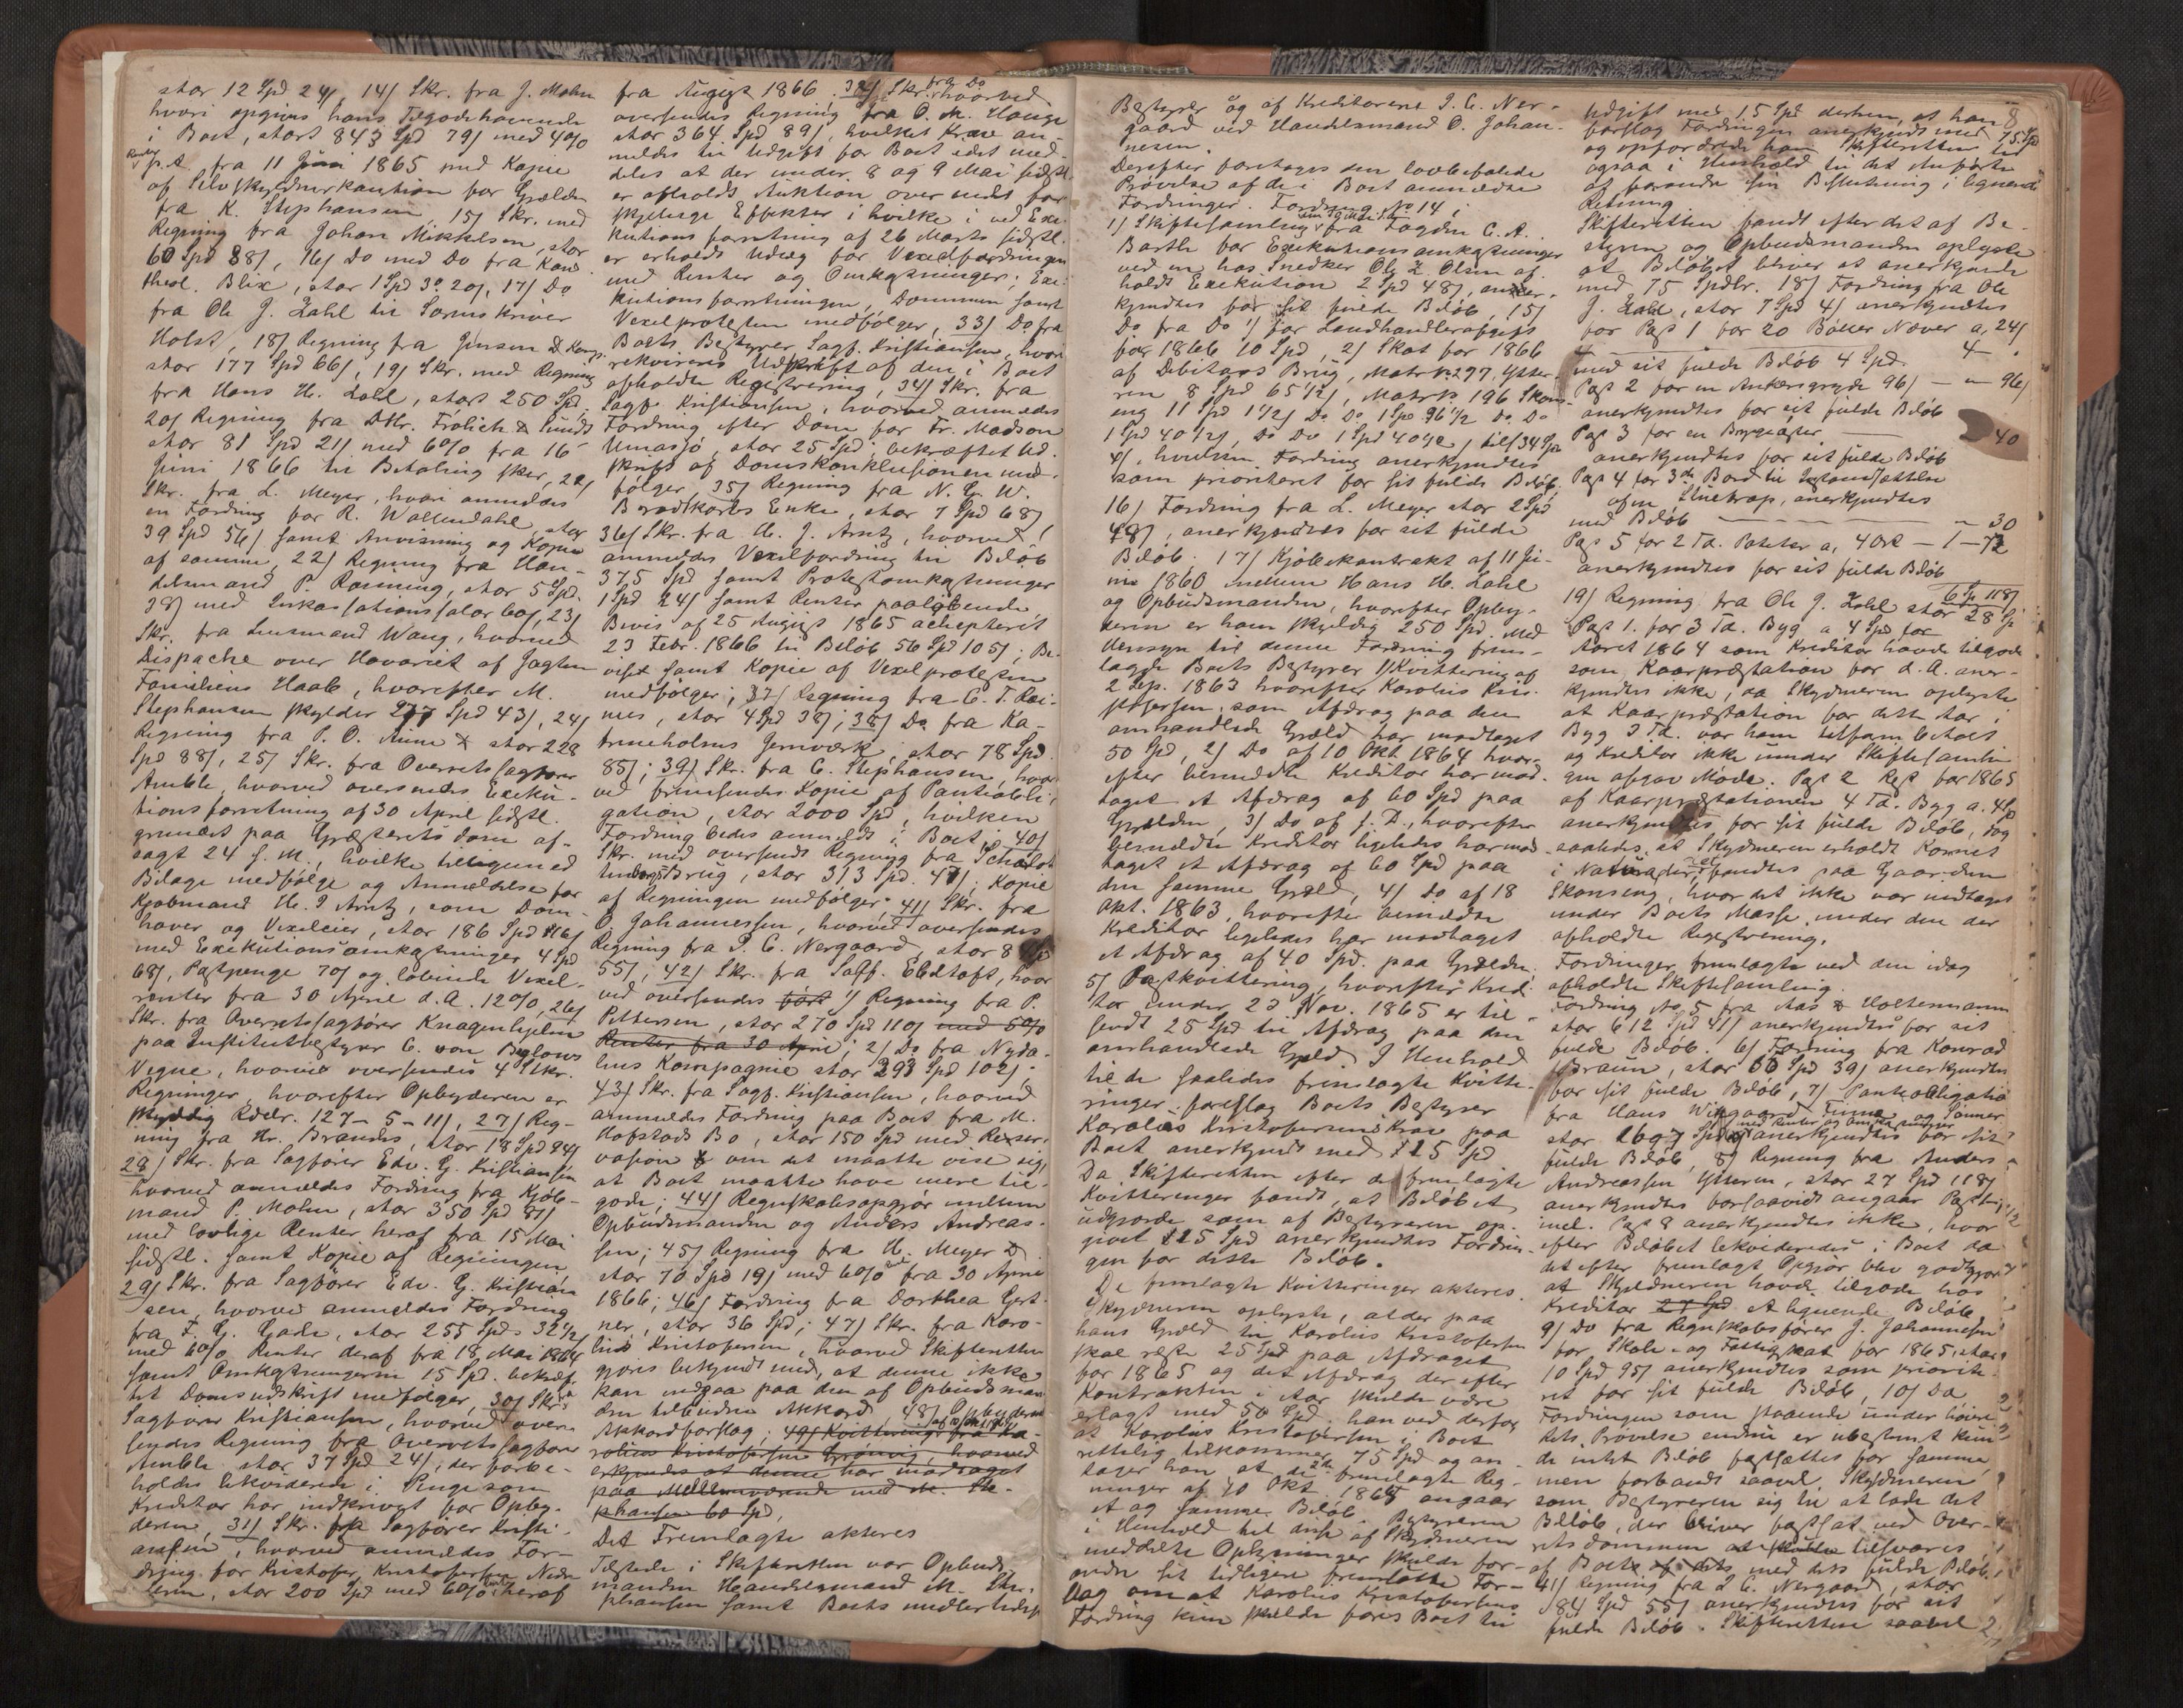 stor 12 Spd 24/, 14/ Skr. fra J. Mohn
hvori opgives hans Tilgodehavende
i Boet, stort 843 Spd 79/ med 4%
Renter
p.t. fra 11 Juni 1865 med Kopie
af Selvskyldnerkaution for Gjælden
fra K. Stephansen, 15/ Skr. med
Regning fra Johan Mikkelsen, stor
60 Spd 88/, 16/ Do med Do fra Kand
theol. Blix, stor 1 Spd 3° 20/, 17/ Do
fra Ole J. Zahl til Sorenskriver
Holst, 18/ Regning fra Jensen & Komp.
stor 177 Spd 66/, 19/ Skr. med Regning
fra Hans H. Zahl, stort 250 Spd,
20/ Regning fra DHr. Frølich & Sunds
stor 81 Spd 21/ med 6% fra 16
Juni 1866 til Betaling sker, 21/
Skr. fra L. Meyer, hvori anmeldes
en Fordring for R. Wallendahl, stor
39 Spd 56/ samt Anvisning og Kopie
af samme, 22/ Regning fra Han-
delsmand P. Rønning, stor 5 Spd.
38/ med Inkassationssalær 60/, 23/
Skr. fra Lensmand Wang, hvormed
Dispache over Havariet af Jagten
Familiens Haab, hvorefter M.
Stephansen skylder 277 Spd 43/, 24/
Regning fra P. O. Aune & stor 228
Spd 88/, 25/ Skr. fra Overretssagfører
Amble, hvorved oversendes Exeku-
tionsforretning af 30 April sidstl.
grundet paa Gjæsterets dom af-
sagt 24 s. M., hvilke tilligemed
Bilage medfølge og Anmeldelse for
Kjøbmand H. J Arntz, som Dom-
haver og Vexeleier, stor 186 Spd 116/
med Exekutionsomkostninger 4 Spd
68/, Postpenge 70/ og løbende Vexel-
renter fra 30 April d. A. 12%, 26/
Skr. fra Overretssagfører Knagenhjelm
paa Institutbestyrer C. von Bülows
Vegne, hvorved oversendes 4 Stkr.
Regninger, hvorefter Opbyderen er
skyldig Rdlr. 127 - 5 - 11/, 27/ Reg-
ning fra Hr. Brandis, stor 18 Spd 94/
28/ Skr. fra Sagfører Edv. G. Kristiansen
hvorved anmeldes Fordring fra Kjøb-
mand P. Mohn, stor 350 Spd 87/
med lovlige Renter heraf fra 15 Mai
sidstl. samt Kopie af Regningen
29/ Skr. fra Sagfører Edv. G. Kristian
sen, hvorved anmeldes Fordring
fra F. G. Gade, stor 255 Spd 32½
med 6% Renter deraf fra 18 Mai 1864
samt Omkostningerne 15 Spd. bekræf-
tet Domsudskrift medfølger, 30/ Skr.
Sagfører Kristiansen, hvorved over-
sendes Regning fra Overretssagfører
Amble stor 37 Spd 24/, der forbe-
holdes likviderede i Penge som
Kreditor har indkrævet for Opby-
deren, 31/ Skr. fra Sagfører Kristi-
ansen, hvorved anmeldes For-
dring for Kristofer Kristofersen Nedre
leren, stor 200 Spd med 6% Renter heraf
fra August 1866. 32/ Skr. fra Do hvorved
oversendes Regning fra O. M. Hauge
stor 364 Spd 89/, hvilket Krav an-
meldes til Udgift for Boet idet med-
deles at der under 8 og 9 Mai sidstl.
er afholdt Auktion over endel for
skjellige Effekter i hvilke i ved Exe-
kutions forretning af 26 Marts sidstl.
er erholdt Udlæg for Vexelfordringen
med Renter og Omkostninger; Exe-
kutionsforretningen, Dommen samt
Vexelprotesten medfølger, 33/ Do fra
Boets Bestyrer Sagf. Kristiansen, hvori
rekvireres Udskrift af den i Boet
afholdte Registrering, 34/ Skr. fra
Sagf. Kristiansen, hvorved anmeldes
Fordring efter Dom for Fr. Madson
Umasjø, stor 25 Spd; bekræftet Ud-
skrift af Domskonklusionen med-
følger, 35/ Regning fra N. G. W.
Brodtkorbs Enke, stor 7 Spd 68/
36/ Skr. fra H. J. Arntz, hvorved
anmeldes Vexelfordring til Beløb
375 Spd samt Protestomkostninger
1 Spd 24/ samt Renter paaløbende,
Bevis af 25 August 1865 achepteret
23 Febr. 1866 til Beløb 56 Spd 105/; Be-
viset samt Kopie af Vexelprotesten
medfølger; 37/ Regning fra C. T. Rei-
nes, stor 4 Spd 38/; 38/ Do fra Ka-
trineholms Jernværk, stor 78 Spd.
85/; 39/ Skr. fra C. Stephansen, hvor-
ved fremsendes Kopie af Pantobli-
gation, stor 2000 Spd, hvilken
Fordring bedes anmeldt i Boet; 40/
Skr. med oversendt Regning fra Schulte
tinborgs Brug, stor 313 Spd. 47/; Kopie
af Regningen medfølger; 41/ Skr. fra
O Johannessen, hvorved oversendes
Regning fra I. C. Nergaard, stor 8
55/; 42/ Skr. fra Sagf. Ebeltoft, hvor
ved oversendes 1/ Regning fra P.
Pettersen, stor 270 Spd 110/ med 5%
Renter fra 30 April; 2/ Do fra Nyda-
lens Kompagnie stor 293 Spd 102/;
43/ Skr. fra Sagf. Kristiansen, hvorved
anmeldes Fordring paa Boet fra M.
Hofstads Bo, stor 150 Spd med Reser-
vasion & om det maatte vise sig,
at Boet maatte have mere til-
gode; 44/ Regnskabsopgjør mellem
Opbudsmanden og Anders Andreas-
sen; 45/ Regning fra H. Meyer &
stor 70 Spd 19/ med 6% fra 30 April
1866; 46/ Fordring fra Dorthea Gert-
ner, stor 36 Spd; 47/ Skr. fra Karo-
lius Kristofersen, hvorved Skifteretten
gjøres bekjendt med, at denne ikke
kan indgaa paa den af Opbudsman-
den tilbudne Akkord, 48/ Opbyderens
Akkordforslag; 49/ Kvitteringer fra Ka-
rolius Kristofersen Grønvig, hvorved
erkjendes at denne har modtaget
paa Mellemværende med M. Ste-
phansen 60 Spd,
Det Fremlagte akteres
Tilstede i Skifteretten var Opbuds-
manden Handelsmand M. Ste-
phansen samt Boets midlertidige
Bestyrer og af Kreditorene I. C. Ner-
gaard ved Handelsmand O. Johan-
nesen.
Derefter foretages den lovbefalede
Prøvelse af de i Boet anmeldte
Fordringer. Fordring No 14 i
1/ Skiftesamling fra Fogden C. A.
Barth for Exekutionsomkostninger
ved en hos Snedker Ole Z. Olsen af-
holdt Exekution 2 Spd 48/, aner-
kjendtes for sit fulde Beløb, 15/
Do fra Do 1/ for Landhandlerafgift
for 1866 10 Spd, 2/ Skat for 1866
af Debitors Brug, Matr № 297, Ytter-
ren 8 Spd 65½/, Matr № 196 Skons-
eng 11 Spd 1½/ Do Do 1 Spd 96½ Do Do
1 Spd 40½/, Do Do 1 Spd 40½/, tils. 34 Spd
4/, hvilken Fordring anerkjendtes
som prioriteret for sit fulde Beløb.
16/ Fordring fra L. Meyer stor 2 Spd
48/, anerkjendtes for sit fulde
Beløb. 17/ Kjøbekontrakt af 11 Ju-
ni 1860 mellem Hans H. Zahl
og Opbudsmanden, hvorefter Opby-
deren er ham skyldig 250 Spd. Med
Hensyn til denne Fordring frem-
lagde Boets Bestyrer 1/ Kvittering af
2 Sep. 1863 hvorefter Karolius Kris-
stofersen, som Afdrag paa den
omhandlede Gjæld har modtaget
50 Spd, 2/ Do af 10 Okt 1864 hvor-
efter bemeldte Kreditor har mod-
taget et Afdrag af 60 Spd paa
Gjælden, 3/ Do af s. D., hvorefter
bemeldte Kreditor ligeledes har mod-
taget et Afdrag af 60 Spd paa
den samme Gjæld, 4/ Do af 18
Okt. 1863, hvorefter bemeldte
Kreditor ligeledes har modtaget
et Afdrag af 40 Spd. paa Gjælden.
5/ Postkvittering, hvorefter Kredi-
tor under 23 Nov. 1865 er til-
sendt 25 Spd til Afdrag paa den
omhandlede Gjæld. I Henhold
til de saaledes fremlagte Kvitte-
ringer foreslog Boets Bestyrer
Karolius Kristofersens Krav paa
Boet anerkjendt med 125 Spd
Da Skifteretten efter de fremlagte
Kvitteringer fandt, at Beløbet
udgjorde som af Bestyreren op-
givet 125 Spd anerkjendtes Fordrin-
gen for dette Beløb.
De fremlagte Kvitteringer akteres.
Skyldneren oplyste, at der paa
hans Gjæld til Karolius Kristofersen
skal reste 25 Spd paa Afdraget
for 1865 og det Afdrag der efter
Kontrakten i Aar skulde være
erlagt med 50 Spd. han ved derfor
at Karolius Kristofersen i Boet
rettelig tilkommer 75 Spd og an-
tager han at de 2de fremlagte Reg-
ninger af 10 Okt. 1864 angaar
et og samme Beløb. Bestyreren
i Henhold til disse af Skyldneren
meddelte Oplysninger skulde for-
andre sit tidligere fremsatte For-
slag om at Karolius Kristofersens
Fordring kun skulde føres Boet til
Udgift med 15 Spd derhen, at han 8
forslog Fordringen anerkjendt med 75 Spd
og opfordrede han Skifteretten til
ogsaa i Henhold til det Anførte
at forandre sin Beslutning i lignende
Retning
Skifteretten fandt efter det af Be-
styren og Opbudsmanden oplyste
at Beløbet bliver at anerkjende
med 75 Spdlr. 18/ Fordring fra Ole
J. Zahl, stor 7 Spd 4/ anerkjendtes
for Post 1 for 20 Bøtter Næver a, 24/
med sit fulde Beløb 4 Spd. 4 -
Post 2 for en Ankersgryde 96/ - " 96/
anerkjendtes for sit fulde Beløb
Post 3 for en Brygeaster — 40
anerkjendtes for sit fulde Beløb
Post 4 for 3de Bord til Istandsættelse
af en Sluetrap, anerkjendtes
med Beløb — " 30
Post 5 for 2 Td. Poteter a, 4 Ort - 1 - 72
anerkjendtes for sit fulde Beløb
6 Sp 118/
19/ Regning fra Ole J. Zahl stor 28 Sp
Post 1. for 3 Td. Byg a 4 Spd for
Aaret 1864 som Kreditor havde tilgode
som Kaarpræstation for d. A. aner-
kjendtes ikke, da Skyldneren oplyste
at Kaarpræstation for dette Aar i
Byg 3 Td. var ham tilfarm betalt
og Kreditor ikke under Skiftesamlin-
gen afgav Møde. Post 2 Rest for 1865
af Kaarpræstationen 4 Td. Byg a. 4 Sp
anerkjendtes for sit fulde Beløb, dog
saaledes, at Skyldneren erholdt Kornet
i Natura der fandtes paa Gaarden
Skonseng, hvor det ikke var indtaget
under Boets Masse under den der
afholdte Registrering.
Fordringer fremlagte ved den idag
afholdte Skiftesamling.
Fordring No 5 fra Aas & Holtermann
stor 612 Spd 41/ anerkjendtes for sit
fulde Beløb. 6/ Fordring fra Konrad
Braun, stor 66 Spd 39/ anerkjendtes
for sit fulde Beløb, 7/ Pantobligation
fra Hans Wingaard Finne og Sønner
stor 1697 Spd med Renter og Omkostninger anerkjendtes for sit
fulde Beløb, 8/ Regning fra Anders
Andreassen Ytteren, stor 27 Spd 118/
anerkjendtes forsaavidt angaar Post 1,
incl. Post 8 anerkjendtes ikke, hvor
efter Beløbet likvideredes i Boet da
det efter fremlagt Opgjør blev godtgjort
at Skyldneren havde tilgode hos
Kreditor 27 Spd et lignende Beløb
9/ Do fra Regnskabsfører J. Johannesen
for Skole- og Fattigskat for 1865, stor
10 Spd 95/ anerkjendtes som priorite-
ret for sit fulde Beløb, 10/ Da
Fordringen som staaende under høiere
Rets Prøvelse endnu er ubestemt kun-
de intet Beløb fastsættes for samme,
men forbandt saavel Skyldneren
som Bestyreren sig til at lade det
Beløb, der bliver fastsat ved Over-
retsdommen at skulde tilsvares
af Boets af dets med dets fulde Beløb.
41/ Regning fra I. C. Nergaard, stor
84 Spd 55/ anerkjendtes for sit
fulde Beløb. Skifteretten saavel